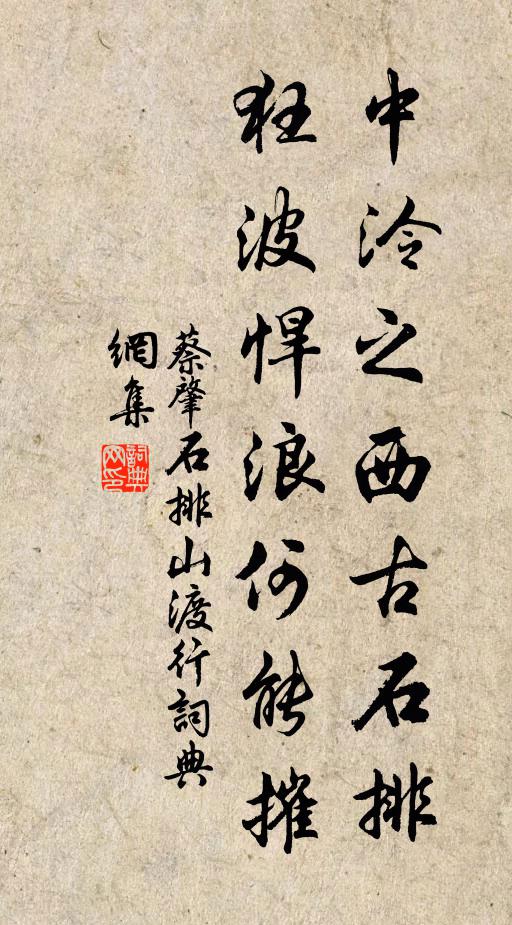 中泠之西古石排
狂波悍浪何能摧
蔡肇石排山渡行詞典
網集
詞典網印